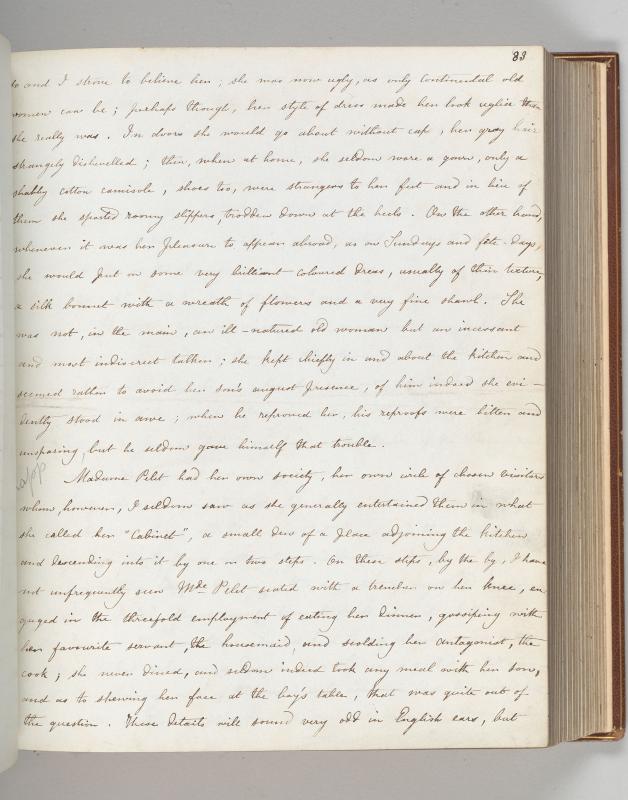 83
so and I strove to believe her; she was now ugly, as only Continental old
women can be; perhaps though, her style of dress made her look uglier than
she really was. In doors she would go about without cap, her gray hair
strangely dishevelled; then, when at home, she seldom wore a gown, only a
shabby cotton camisole, shoes too, were strangers to her feet and in lieu of
them she sported roomy slippers, trodden down at the heels. On the other hand,
whenever it was her pleasure to appear abroad, as on Sundays and fête-days,
she would put on some very brilliant-coloured dress, usually of thin texture,
a silk bonnet with a wreath of flowers and a very fine shawl. She
was not, in the main, an ill-natured old woman but an incessant
and most indiscreet talker; she kept chiefly in and about the kitchen and
seemed rather to avoid her son's august presence, of him indeed she evi-
dently stood in awe; when he reproved her, his reproofs were bitter and
unsparing, but he seldom gave himself that trouble.
Madame Pelet had her own society, her own circle of chosen visitors
whom, however, I seldom saw as she generally entertained them in what
she called her "Cabinet", a small den of a place adjoining the kitchen
and descending into it by one or two steps. On these steps, by the by, I have
not unfrequently seen Mde Pelet seated with a trencher on her knee, en
gaged in the threefold employment of eating her dinner, gossiping with
her favourite servant, the housemaid, and scolding her antagonist, the
cook; she never dined, and seldom indeed took any meal with her son,
and as to shewing her face at the boy's table, that was quite out of
the question. These details will sound very odd in English ears, but